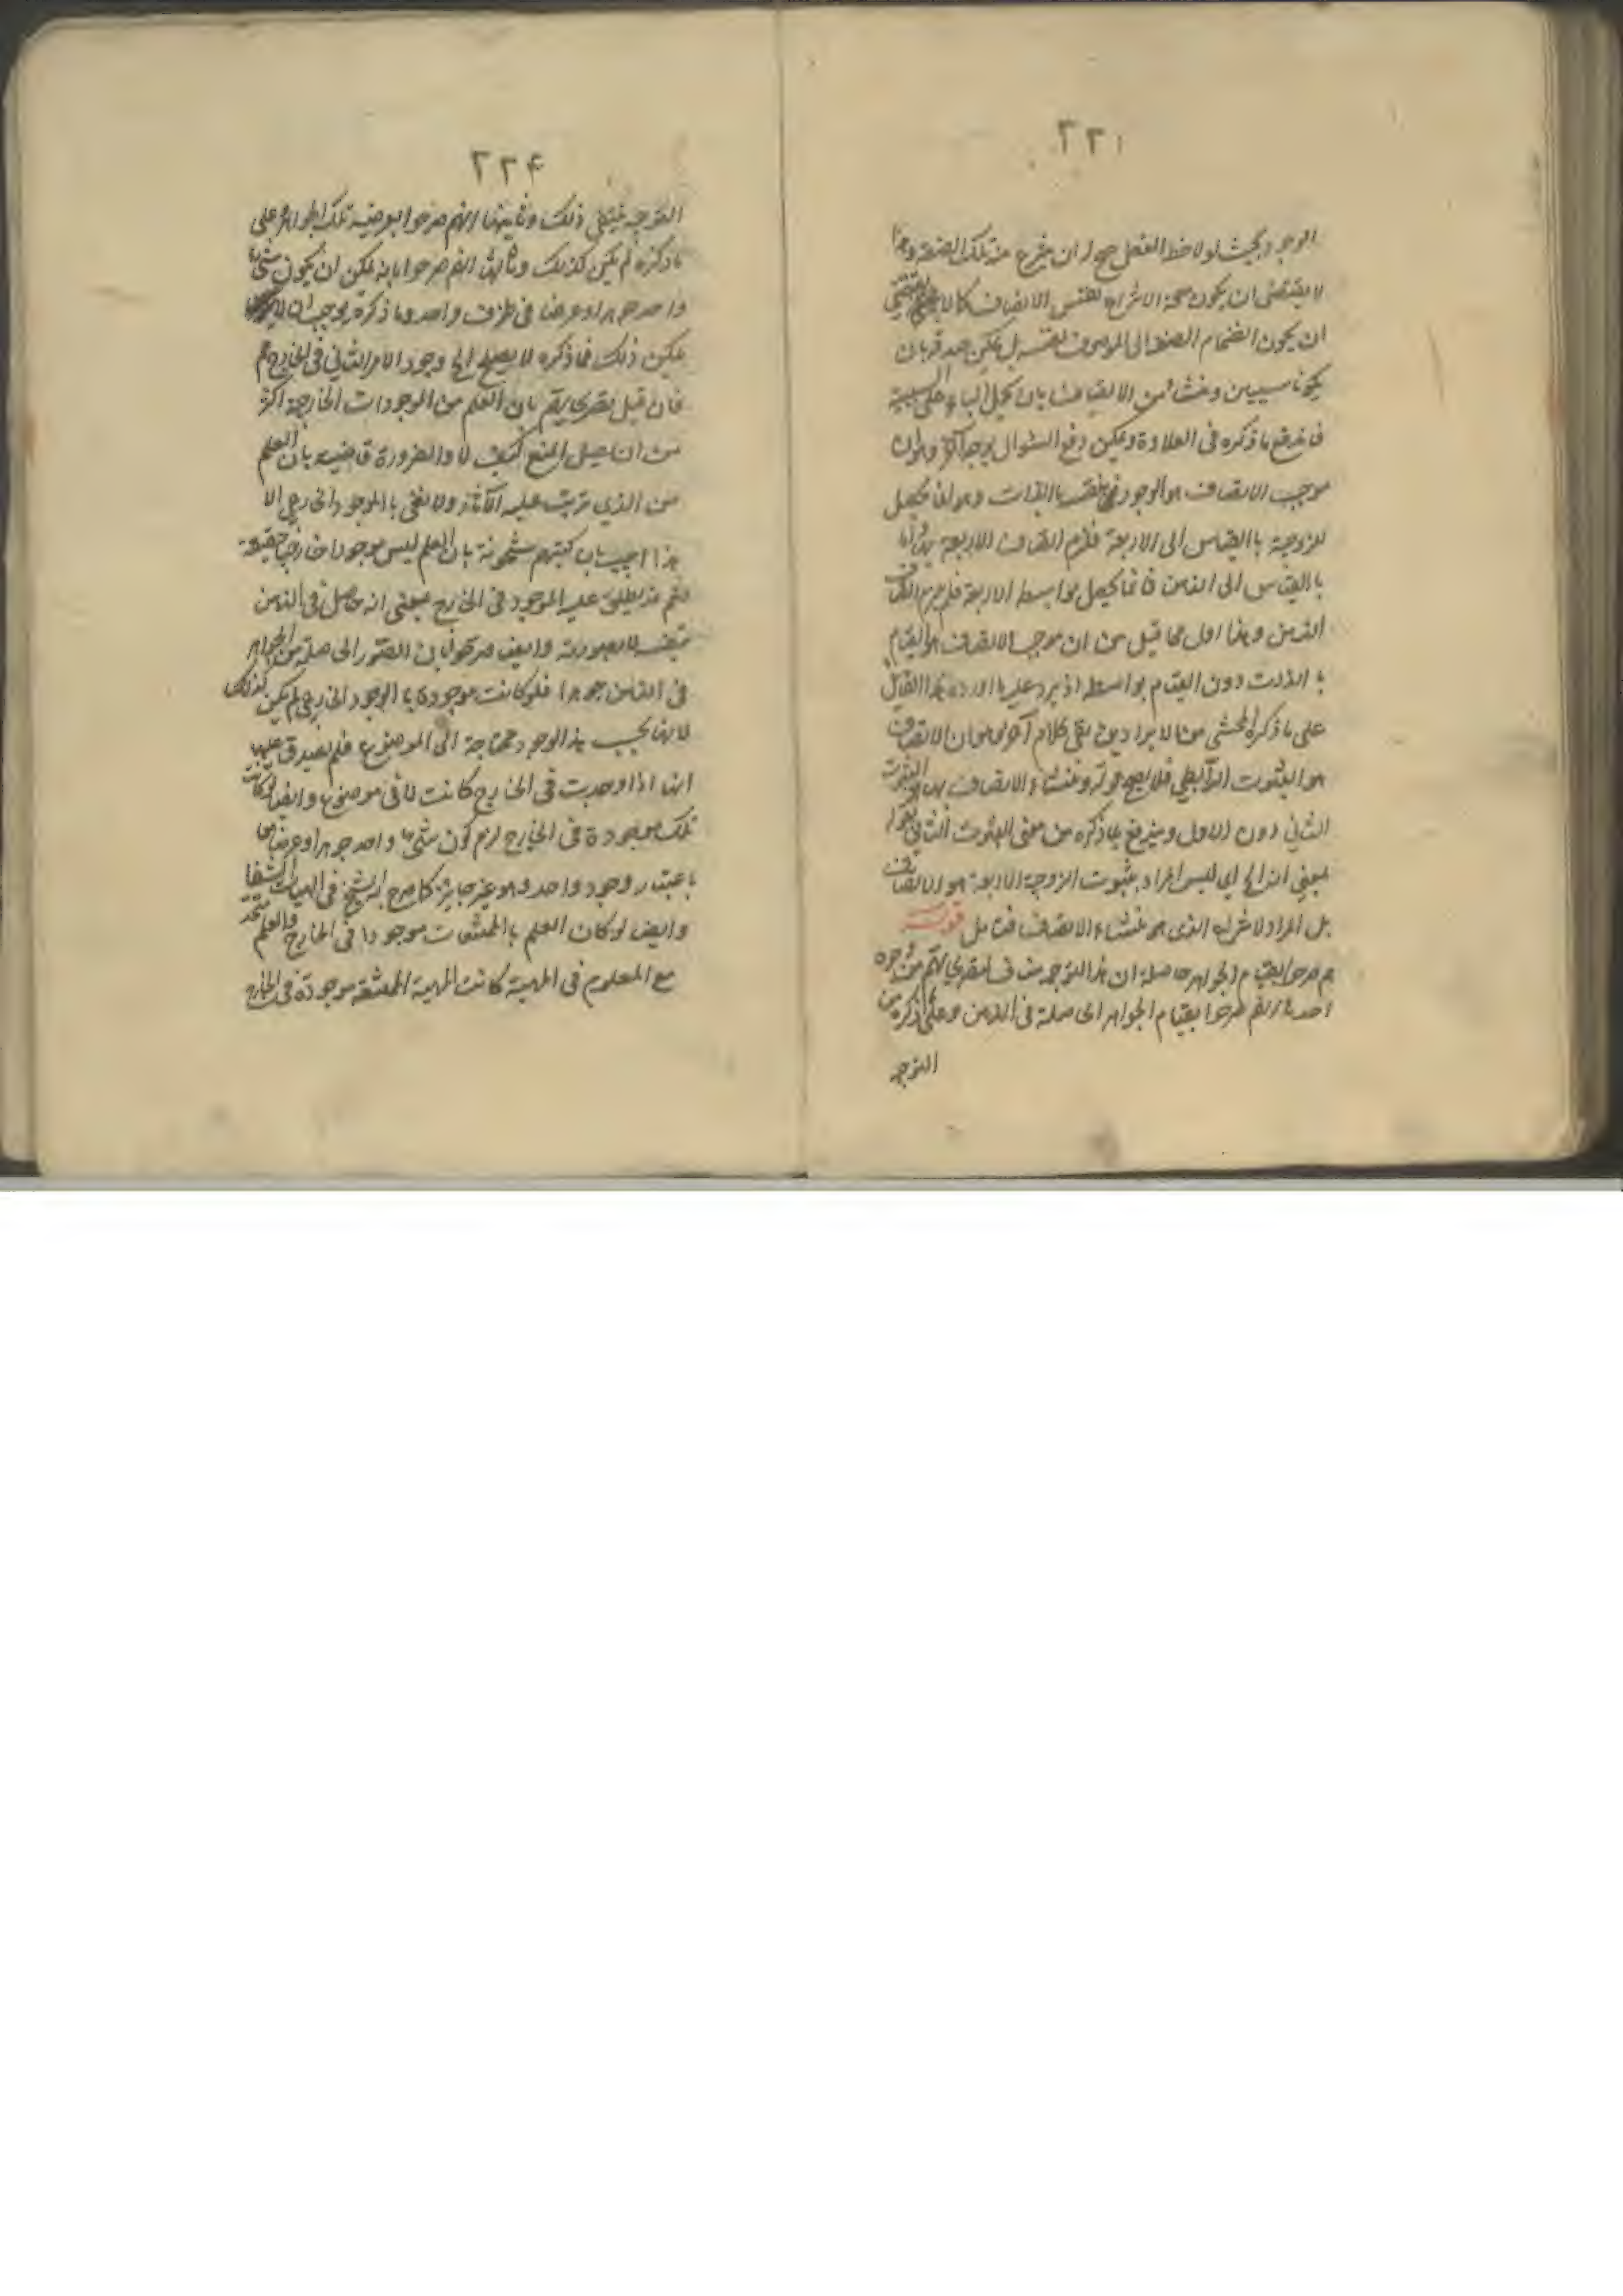 ٢٢١
الوجود بحيث لولاحظ العقل صح له ان ينتزع منه تلك الصفة وهذا
لا يقتضى ان يكون صحة الانتزاع نفس الاتصاف كما لا يقتضى
ان يكون انضمام الصفة الى الموصوف نفسه بل يمكن صدقه بان
يكونا سببين ومنشأ من الاتصاف بان يحمل الباء على السببية
فاندفع ما ذكره فى العلاوة ويمكن دفع السؤال بوجه آخر وهو ان
موجب الاتصاف هو الوجود بالذات وهو انما يحصل
للزوجية بالقياس الى الاربعة فلزم اتصاف الاربعة بها
بالقياس الى الذهن فانما يحصل بواسطة الاربعة فلم يلزم اتصاف
الذهن وهذا اولى مما قيل من ان موجب الاتصاف هو القيام
بالذات دون القيام بواسطة اذ يرد عليه ما اورده هذا القائل
على ما ذكره المحشى من الايراد بقى كلام آخر هو ان الاتصاف
هو الثبوت الرابطى فلا يصح قوله ومنشاء الاتصاف هو الثبوت
الثانى دون الاول ويندفع بما ذكره من معنى الثبوت الثانى
بمعنى انتزاع اى ليس المراد بثبوت الزوجية للاربعة هو الاتصاف
بل المراد الانتزاع الذى هو منشاء الاتصاف فتأمل قوله
هم صرحوا بقيام الجواهر حاصله ان هذا التوجيه مناف لما
احدها انهم صرحوا بقيام الجواهر الحاصلة فى الذهن وعلى ما ذكره من
التوجيه
٢٢٤
التوجيه ينتفى ذلك وثانيها انهم صرحوا بعرضية تلك الجواهر وعلى
ما ذكره لم يكن كذلك وثالثها انهم صرحوا بانه يمكن ان يكون شئ
واحد جوهرا وعرضا فى ظرف واحد وما ذكره يوجب ان لا
يمكن ذلك فما ذكره لا يصلح
فان قيل بان العلم من الموجودات الخارجية
من ان المنع كيف لا والضرورة قاضية بان العلم
من الذى يترتب عليه الآثار ولا نعنى بالموجود الخارجى الا
هذا اجيب بان كتبهم مشحونة بان العلم ليس موجودا خارجيا حقيقة
نعم قد يطلق عليه الموجود فى الخارج بمعنى انه حاصل فى الذهن
وايضا صرحوا بان الصور الحاصلة من الجواهر
فى الذهن جوهر فلو كانت موجودة بالوجود الخارجى لم يكن كذلك
لانها بحسب هذا الوجود محتاجة الى الموضوع فلم يصدق عليها
انها اذا وجدت فى الخارج كانت لا فى موضوع وايضا لو كانت
تلك موجودة فى الخارج لزم كون شئ واحد جوهرا وعرضا
باعتبار وجود واحد وهو غير جايز كما صرح به الشيخ فى الهيات الشفا
وايضا لو كان العلم بالممتنعات موجودا فى الخارج والعلم متحد
مع المعلوم فى المهية كانت المهية الممتنعة موجودة فى الخارج